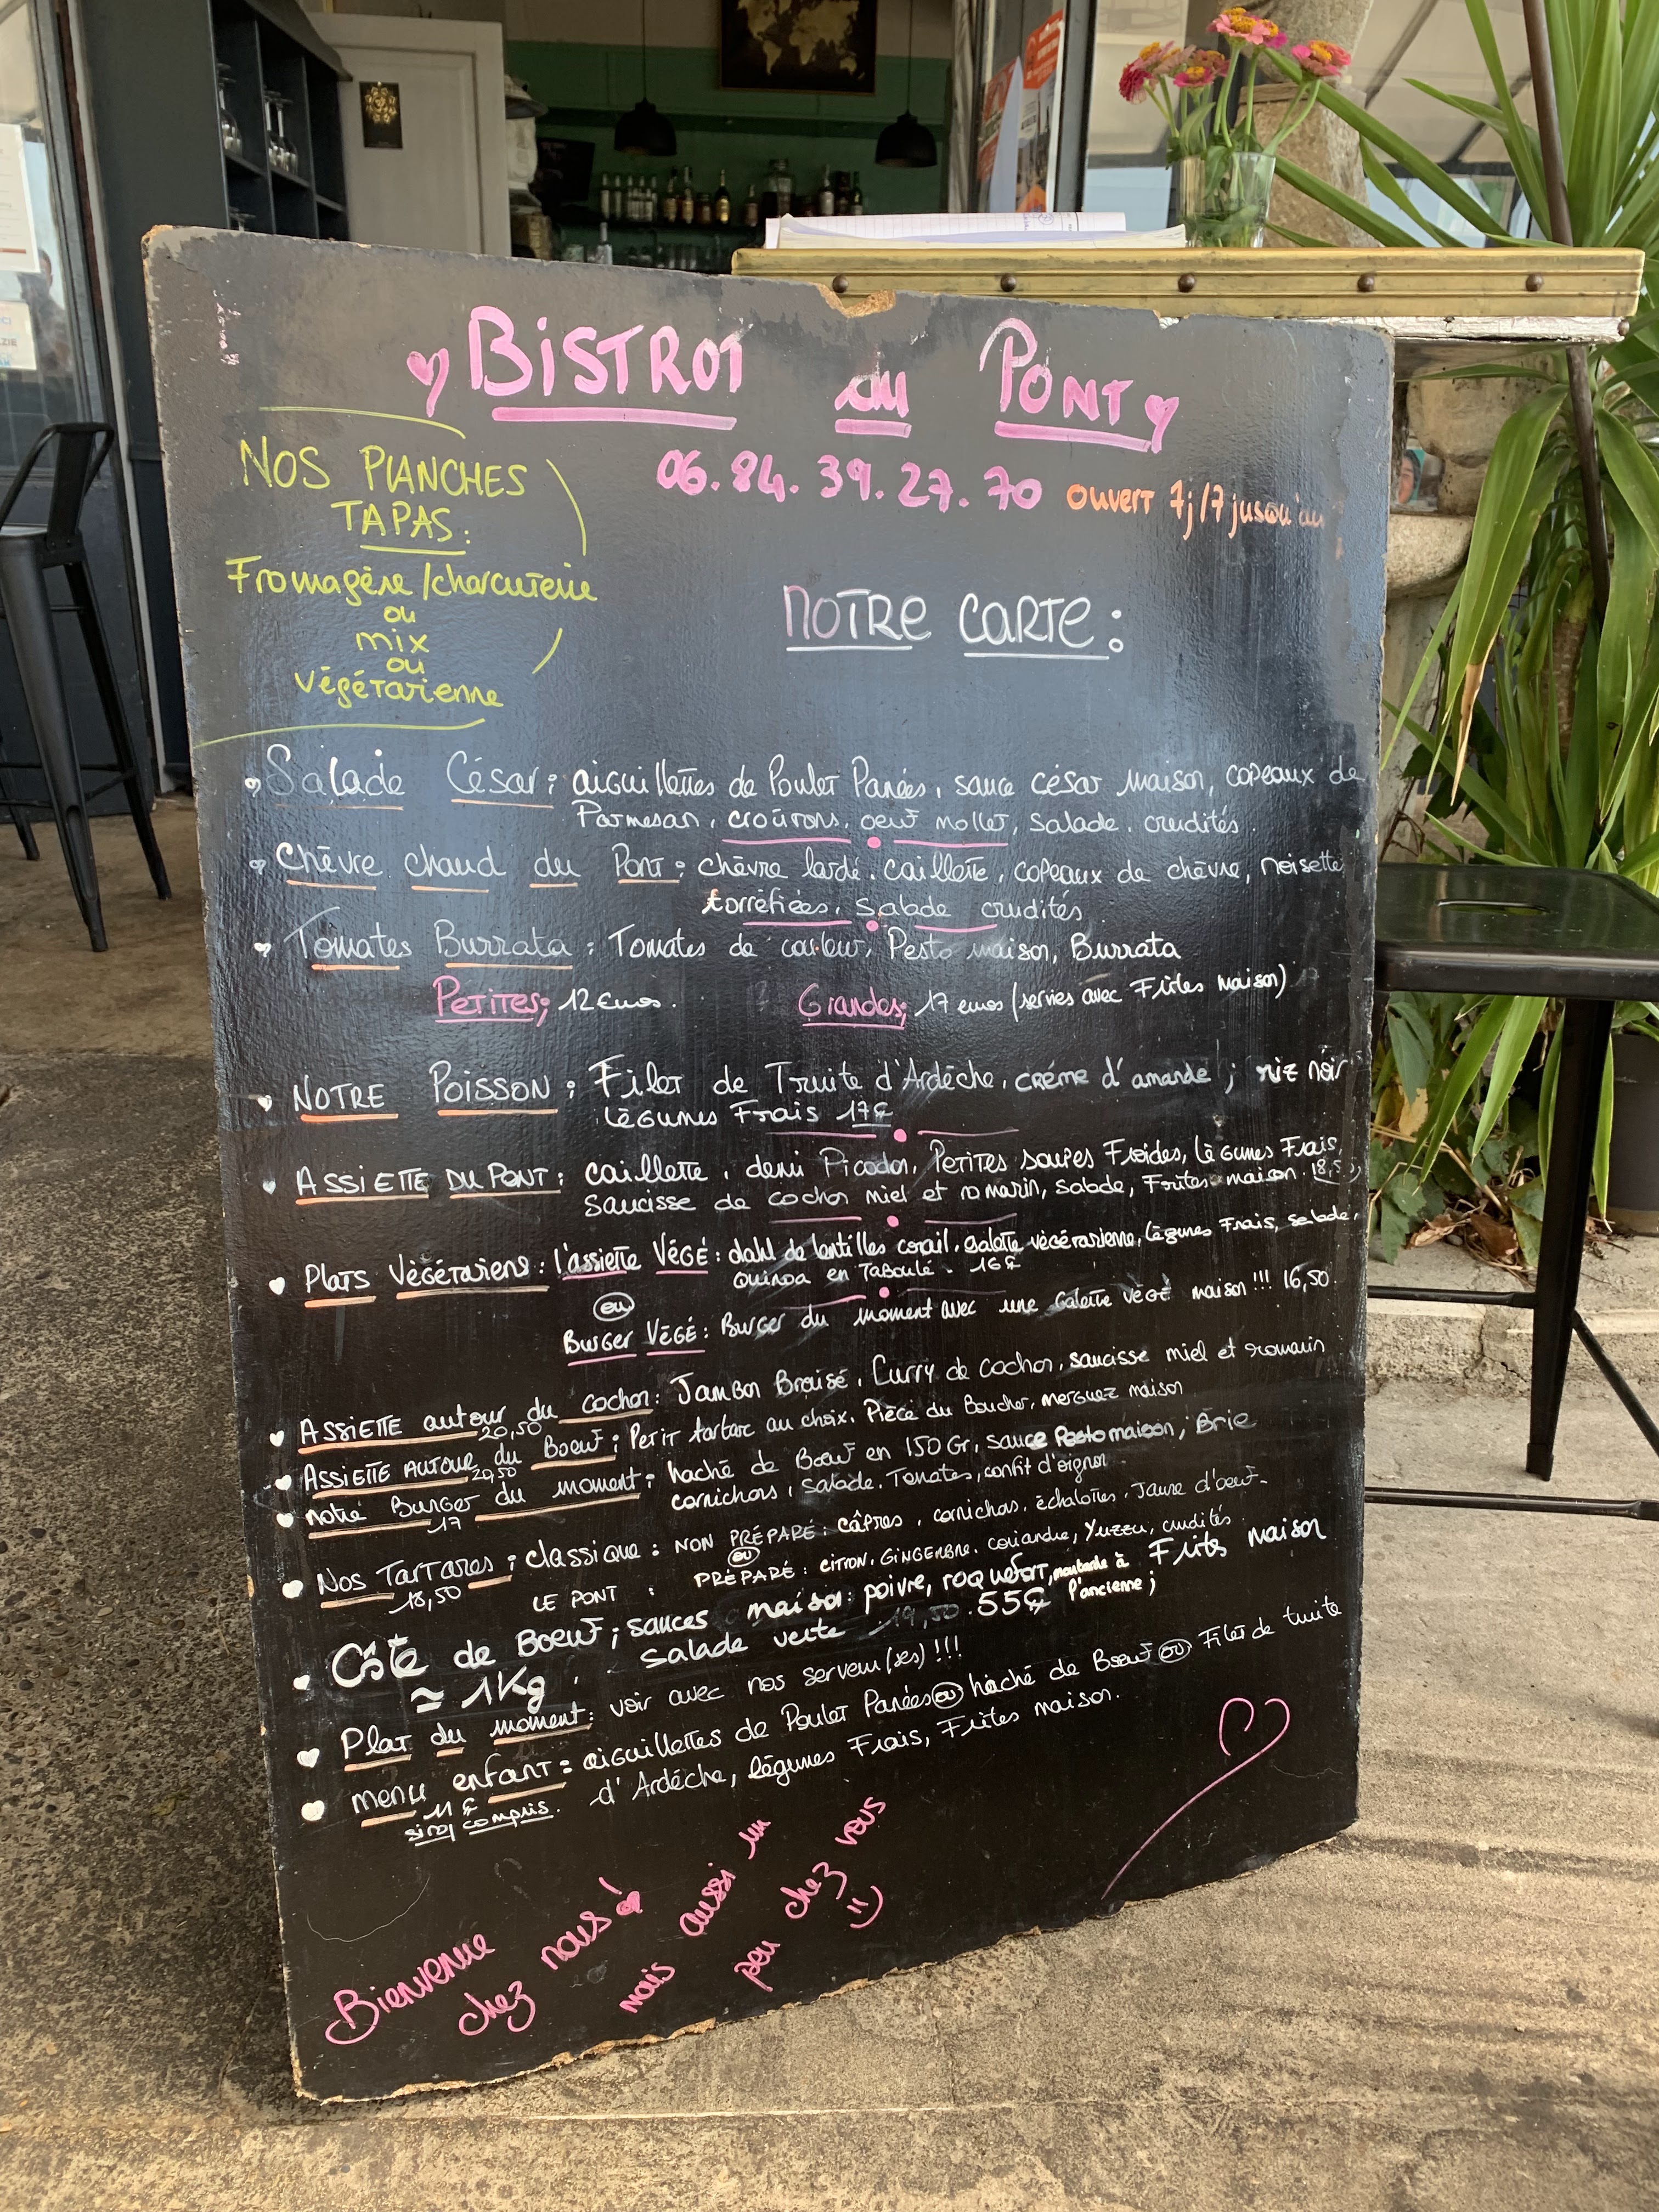 BISTROT du PONT
06.84.39.27.70 ouvert 7j/7 jusqu'au
NOS PLANCHES
TAPAS:
Fromagère/charcuterie
ou
mix
ou
végétarienne
NOTRE CARTE:
Salade César: aiguillettes de Poulet Panées, sauce césar maison, copeaux de
Parmesan, croûtons, oeuf mollet, salade, crudités.
Chèvre chaud du Pont: chèvre lardé, caillette, copeaux de chèvre, noisette
torréfiées, Salade crudités
Tomates Burrata: Tomates de couleur, Pesto maison, Burrata
Petites; 12 Euros. Grandes; 17 euros (servies avec Frites maison)
NOTRE POISSON; Filet de Truite d'Ardèche, crème d'amande; riz noir
Légumes Frais 17€
ASSIETTE DU PONT: caillette, demi Picodon, Petites soupes Froides, Légumes Frais,
Saucisse de cochon miel et romarin, Salade, Frites maison.
Plats Végétariens: l'assiette VÉGÉ: dahl de lentilles corail, galette végétarienne, légumes Frais, salade,
Quinoa en Taboulé. 16€
ou
Burger VÉGÉ: Burger du moment avec une Galette VÉGÉ maison!!! 16,50.
ASSIETTE autour du cochon: Jambon Braisé, Curry de cochon, saucisse miel et romarin
20,50
ASSIETTE AUTOUR du Boeuf; Petit tartare au choix, Pièce du Boucher, merguez maison
20,50
notre Burger du moment; haché de Boeuf en 150 Gr, sauce Pesto maison, Brie
17 cornichons, Salade, Tomates, confit d'oignon
Nos Tartares; classique: NON PRÉPARÉ: câpres, cornichons, échalottes, Jaune d'oeuf.
18,50 ou
LE PONT: PRÉPARÉ: CITRON, GINGEMBRE, coriandre, Yuzzu, crudités
Côte de Boeuf; sauces maison: poivre, roquefort, moutarde à l'ancienne; Frites maison
≈ 1Kg. Salade verte 55€
Plat du moment: voir avec nos serveur(ses)!!!
menu enfant: aiguillettes de Poulet Panées ou haché de Boeuf ou Filet de truite
11€ d'Ardèche, légumes Frais, Frites maison.
sirop compris.
Bienvenue
chez nous!
mais aussi un
peu chez vous